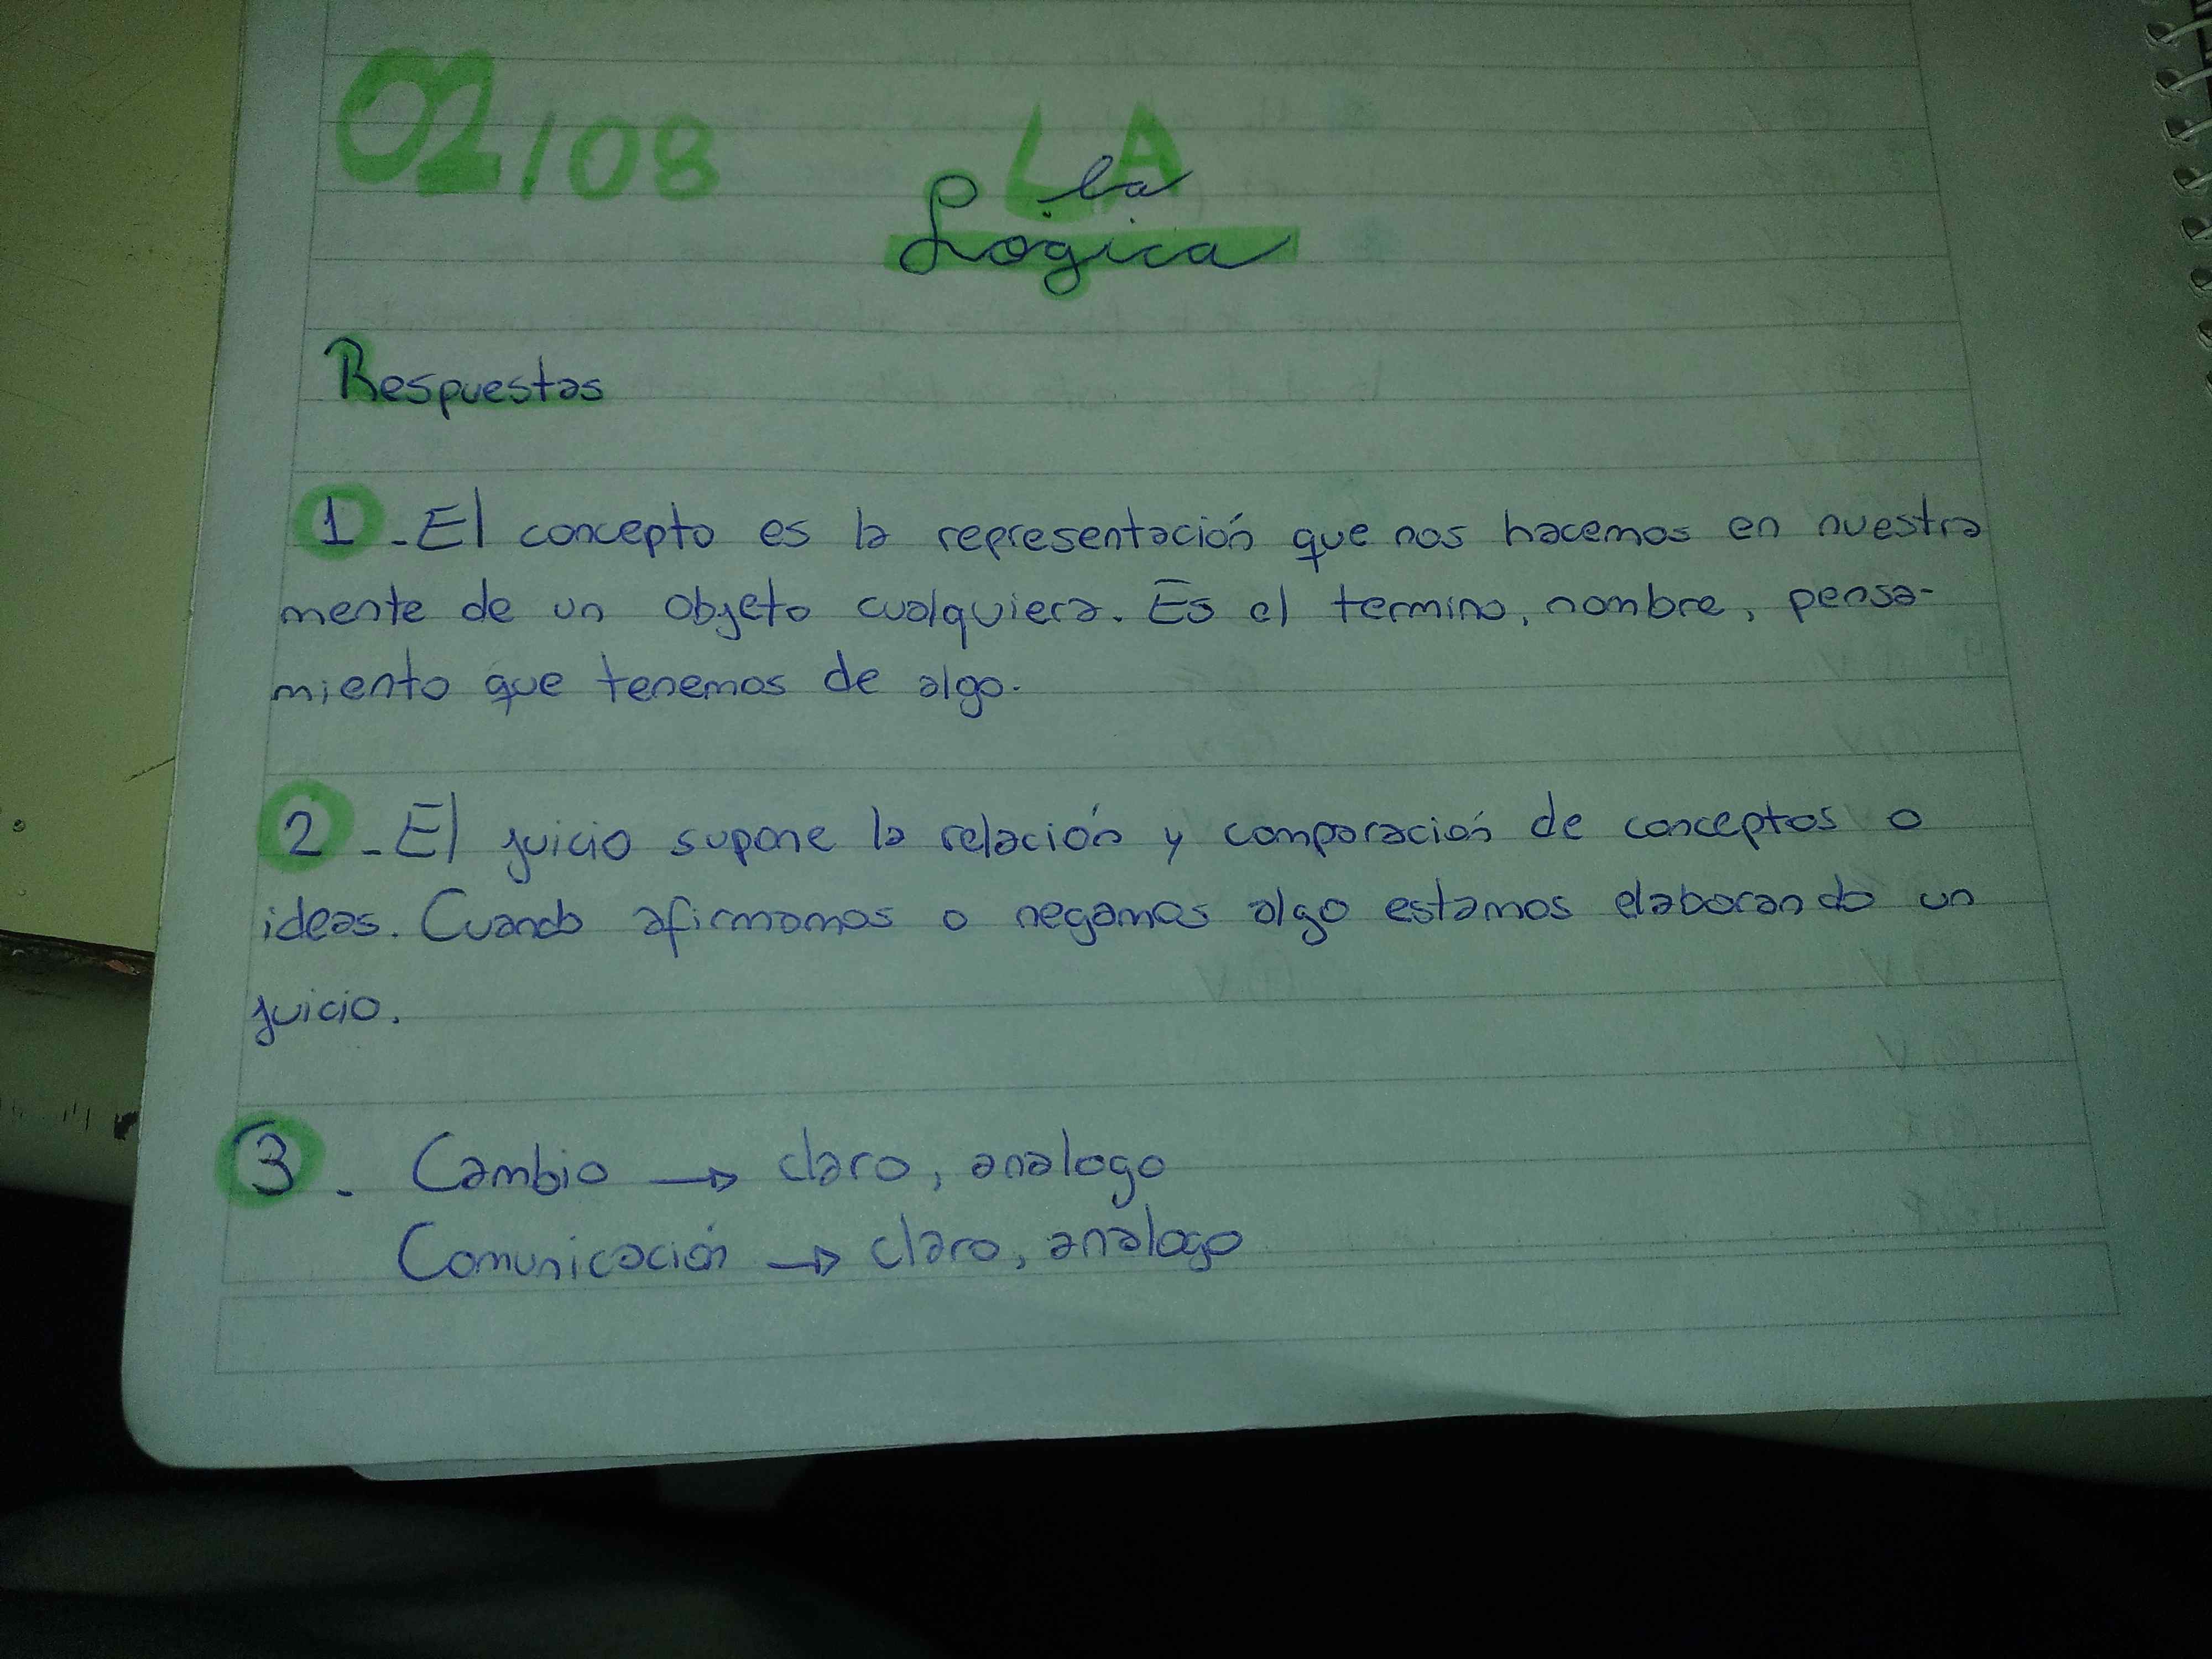 02/08 LA
la
Lógica
Respuestas
1 - El concepto es la representación que nos hacemos en nuestra
mente de un objeto cualquiera. Es el termino, nombre, pensa-
miento que tenemos de algo.
2 - El juicio supone la relación y comparación de conceptos o
ideas. Cuando afirmamos o negamos algo estamos elaborando un
juicio.
3 - Cambio → claro, analogo
Comunicación → claro, analogo